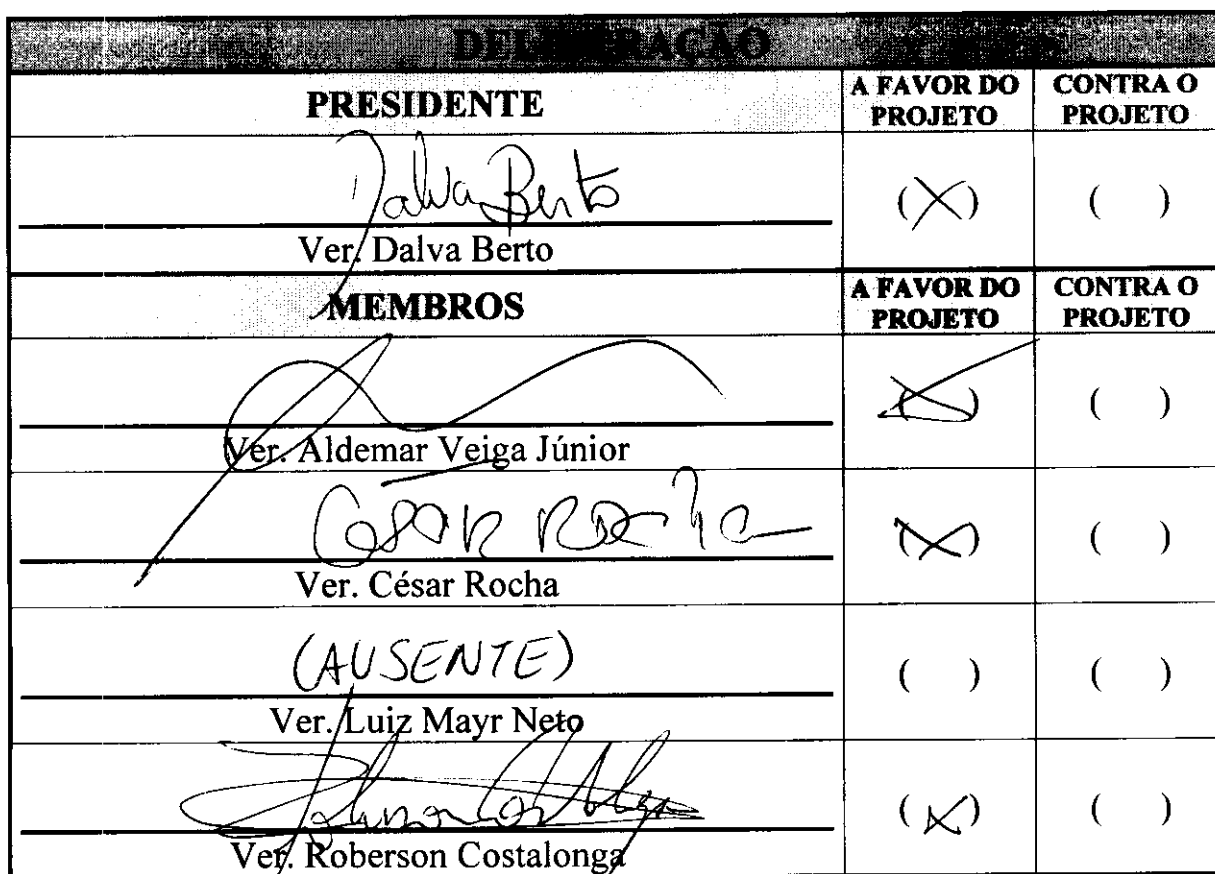 DELIBERAÇÃO
PRESIDENTE
A FAVOR DO PROJETO
CONTRA O PROJETO
Dalva Berto
(X)
( )
Ver. Dalva Berto
MEMBROS
A FAVOR DO PROJETO
CONTRA O PROJETO
(X)
( )
Ver. Aldemar Veiga Júnior
César Rocha
(X)
( )
Ver. César Rocha
(AUSENTE)
( )
( )
Ver. Luiz Mayr Neto
(X)
( )
Ver. Roberson Costalonga